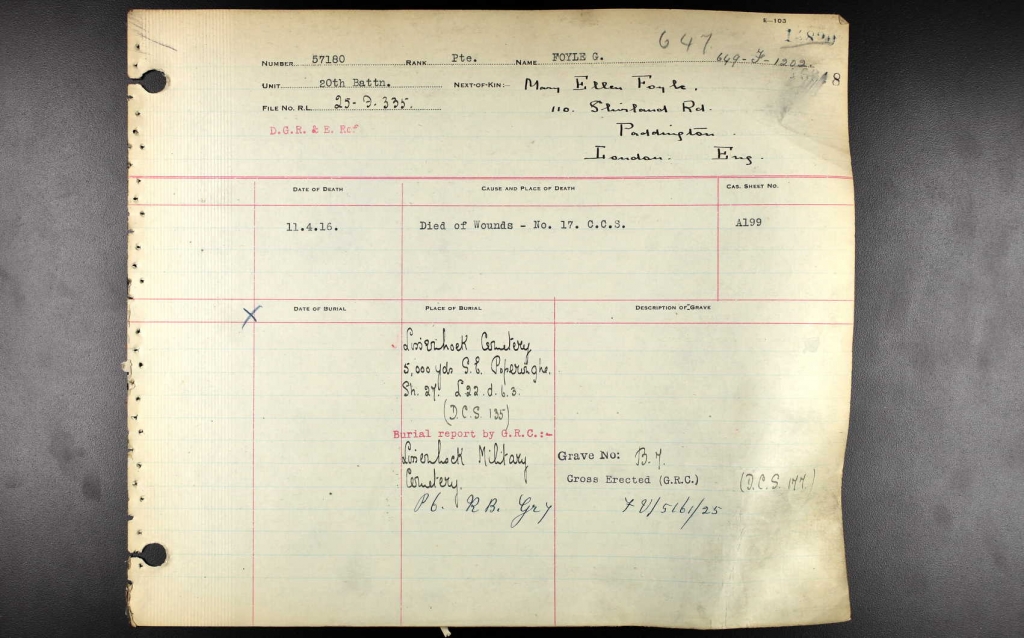 E-103
647
649-F-1202.
NUMBER 57180 RANK Pte. NAME FOYLE G.
UNIT 20th Battn. NEXT-OF-KIN:- Mary Ellen Foyle.
FILE NO. R.L. 25-9-335. 110. Shirland Rd.
D.G.R. & E. Ref Paddington.
London. Eng.
DATE OF DEATH CAUSE AND PLACE OF DEATH CAS. SHEET NO.
11.4.16. Died of Wounds - No. 17. C.C.S. A199
X DATE OF BURIAL PLACE OF BURIAL DESCRIPTION OF GRAVE
Lissenhoek Cemetery
5,000 yds S.E. Poperinghe.
Sh. 27. L22.d.6.3.
(D.C.S. 135)
Burial report by G.R.C.:-
Lissenhoek Military Grave No: B.7.
Cemetery. Cross Erected (G.R.C.) (D.C.S. 177.)